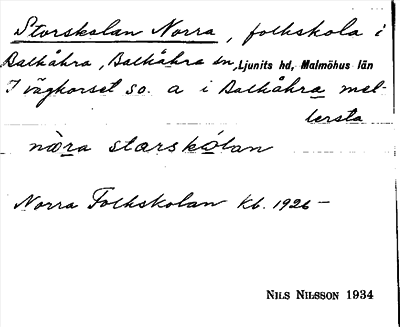 Storskolan Norra, folkskola i
Balkåkra, Balkåkra sn, Ljunits hd, Malmöhus län
I vägkorset so. a i Balkåkra mel-
lersta
nòra starskólan
Norra Folkskolan Kb. 1926 –
NILS NILSSON 1934